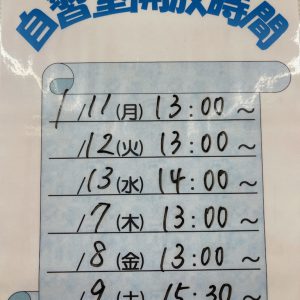 自習室開放時間
1/11(月) 13:00~
/12(火) 13:00~
/13(水) 14:00~
/7(木) 13:00~
/8(金) 13:00~
/9(土) 15:30~